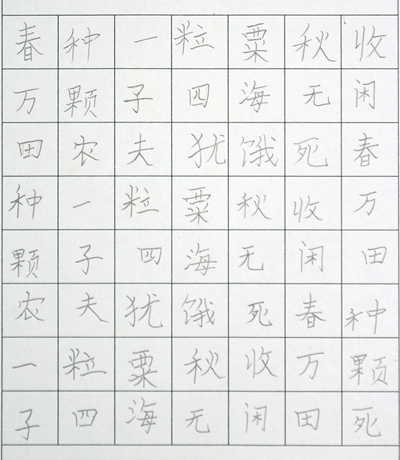 春种一粒粟秋收
万颗子四海无闲
田农夫犹饿死春
种一粒粟秋收万
颗子四海无闲田
农夫犹饿死春种
一粒粟秋收万颗
子四海无闲田死